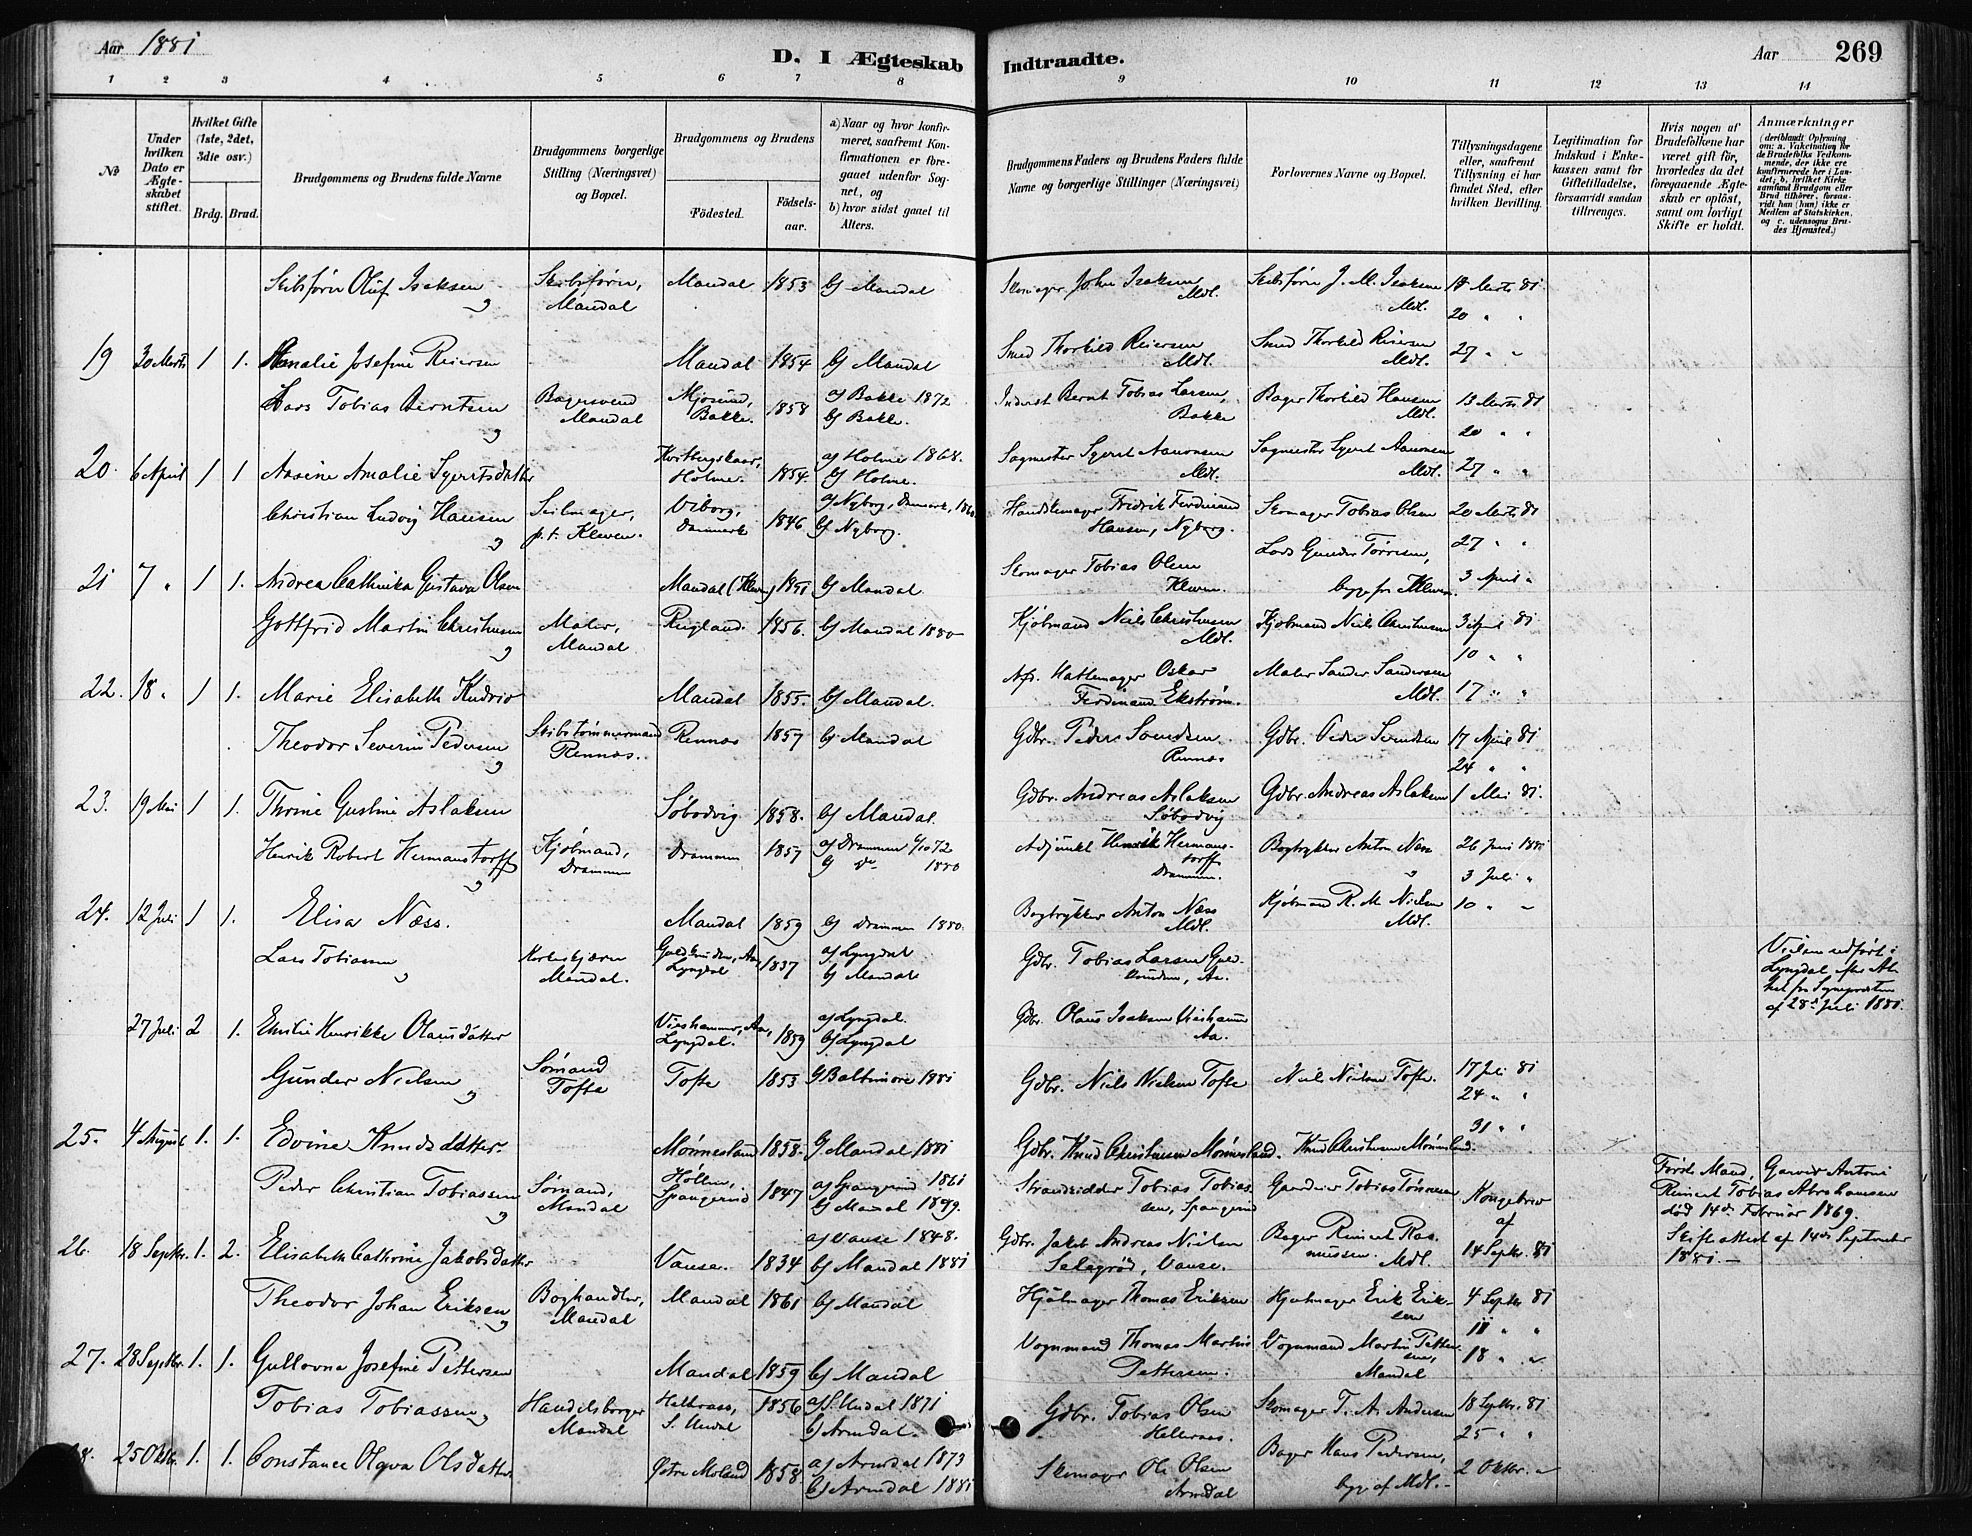 Aar 1881
D. I Ægteskab Indtraadte.
Aar
269
1 2 3 4 5 6 7 8 9 10 11 12 13 14
No
Under hvilken Dato er Ægteskabet stiftet.
Hvilket Gifte (1ste, 2det, 3die osv.)
Brdg. Brud.
Brudgommens og Brudens fulde Navne
Brudgommens borgerlige Stilling (Næringsvei) og Bopæl.
Brudgommens og Brudens
Födested.
Födselsaar.
a) Naar og hvor konfirmeret, saafremt Konfirmationen er foregaaet udenfor Sognet, og
b) hvor sidst gaaet til Alters.
Brudgommens Faders og Brudens Faders fulde Navne og borgerlige Stillinger (Næringsvei)
Forlovernes Navne og Bopæl.
Tillysningsdagene eller, saafremt Tillysning ei har fundet Sted, efter hvilken Bevilling.
Legitimation for Indskud i Enkekassen samt for Giftetilladelse, forsaavidt saadan tiltrænges.
Hvis nogen af Brudefolkene har været gift för, hvorledes da det foregaaende Ægteskab er oplöst, samt om lovligt Skifte er holdt.
Anmærkninger
(deriblandt Oplysning om: a. Vakcination for de Brudefolks Vedkommende, der ikke ere konfirmerede her i Landet; b. hvilket Kirkesamfund Brudgom eller Brud tilhører, forsaavidt han (hun) ikke er Medlem af Statskirken, og c. udensogns Brudes Hjemsted.)
Skibsfører Oluf Isaksen Skibsfører, Mandal Mandal 1853 b) Mandal Skomager John Isaksen Mdl. Skibsfører J. M. Isaksen Mdl. Marts 81
20 " "
19 30 Marts 1 1. Amalie Josefine Reiersen Mandal 1854 b) Mandal Smed Thorkild Reiersen Mdl. Smed Thorkild Reiersen Mdl. 27 " "
Lars Tobias Berntsen Bagersvend Mandal Bakke. 1858 a) Bakke 1872 b) Bakke. Inderst Bernt Tobias Larsen, Bakke Bager Thorkild Hansen Mdl. 13 Marts 81
20 " "
20. 6 April 1 1 Aasine Amalie Syvertsdatter Holme. 1854. a) Holme 1868. b) Holme. Sagmester Syvert Aanonsen Mdl. Sagmester Syvert Aanonsen Mdl. 27 " "
Christian Ludvig Hansen Seilmager, p.t. Kleven. Viborg, Danmark 1846 a) Nyborg, Danmark, b) Nyborg. Fredrik Ferdinand Hansen, Nyborg. Skomager Tobias Olsen 20 Marts 81
27 " "
21 7 " 1 1. Andrea Cathinka Gustava Olsen Mandal (Kleven) b) Mandal. Skomager Tobias Olsen Kleven. Lods Gunder Tørresen, begge fra Kleven. 3 April "
Gottfrid Martin Christensen Maler, Mandal 1856. b) Mandal 1880 Kjøbmand Niels Christensen Mdl. Kjøbmand Niels Christensen 3 April 81
10 " "
22. 18 " 1 1. Marie Elisabeth Mandal 1855. b) Mandal. Afd. Hattemager Oskar Ferdinand Ekstrøm. Maler Sander Sandersen Mdl. 17 " "
Theodor Severin Pedersen Skibstømmermand Rennæs. Rennæs 1857 b) Mandal Gdbr. Peder Svendsen Rennæs Gdbr. Peder Svendsen 17 April 81
24 " "
23. 19 Mai 1 1. Thrine Gustine Aslaksen 1858. b) Mandal. Gdbr. Andreas Aslaksen Gdbr. Andreas Aslaksen 1 Mai 81.
Henrik Robert Hermanstorff Kjøbmand, Drammen Drammen 1857 a) Drammen 72 b) do 1880 Adjunkt Henrik Hermanstorff Drammen. Bogtrykker Anton Næss 26 Juni 1881
3 Juli "
24. 12 Juli 1 1. Elisa Næss. Mandal 1859 b) Drammen 1880. Bogtrykker Anton Næss Mdl. Kjøbmand R. M. Nielsen Mdl. 10 " "
Lars Tobiassen Mandal. Lyngdal 1837 a) Lyngdal b) Mandal Gdbr. Tobias Larsen Aa.
Vielsen udført i Lyngdal, efter af 28de Juli 1881.
27 Juli 2 1. Emilie Henrikke Olausdatter Lyngdal. 1859 a) Lyngdal. b) Lyngdal Gdbr. Olaus Isaksen Aa.
Gunder Nielsen Sømand Tofte Tofte 1853 b) Baltimore 1881 Gdbr. Niels Nielsen Tofte Niels Nielsen Tofte. 17 Juli 81
24 " "
25. 4 August 1. 1. Edvine Knudsdatter. Mønnesland 1858. b) Mandal 1881 Gdbr. Knud Christensen Mønnesland. Knud Christensen Mønnesland. 31 " "
Peder Christian Tobiassen Sømand, Mandal Høllen, Spangereid 1847 a) Spangereid 1861 b) Mandal Strandsidder Tobias Tobiassen, Spangereid Tobias Tønnesen Kongebrev af
Første Mand, Garver Antoni Reinert Tobias Abrahamsen død 14de Februar 1869. Skifteattest af 14de September 1881.
26. 18 Septbr. 1. 2. Elisabeth Cathrine Jakobsdatter Vanse. 1834 a) Vanse 1848. b) Mandal 1881 Gdbr. Jakob Andreas Nielsen Vanse. Bager Reinert Rasmussen. Mdl. 14 Septbr. 81
Theodor Johan Eriksen Boghandler, Mandal Mandal 1861 b) Mandal Hjulmager Thomas Eriksen Hjulmager Erik Eriksen 4 Septbr 81
11 " "
27. 28 Septbr. 1. 1. Gullovna Josefine Pettersen Mandal 1859 b) Mandal Vognmand Thomas Martin Pettersen. Vognmand Martin Pettersen, Mandal 18 " "
Tobias Tobiassen Handelsborger Mandal S. Undal 1856 a) S. Undal 1871 b) Arendal. Gdbr. Tobias Olsen Skomager T. A. Andersen 18 Septbr. 81
25 " "
28. 25 Oktbr. 1. 1. Constance Olava Olsdatter Østre Moland 1858. a) Arendal 1873 b) Arendal 1881 Skomager Ole Olsen Arendal Bager Hans Pedersen, begge af Mdl. 2 Oktbr. "